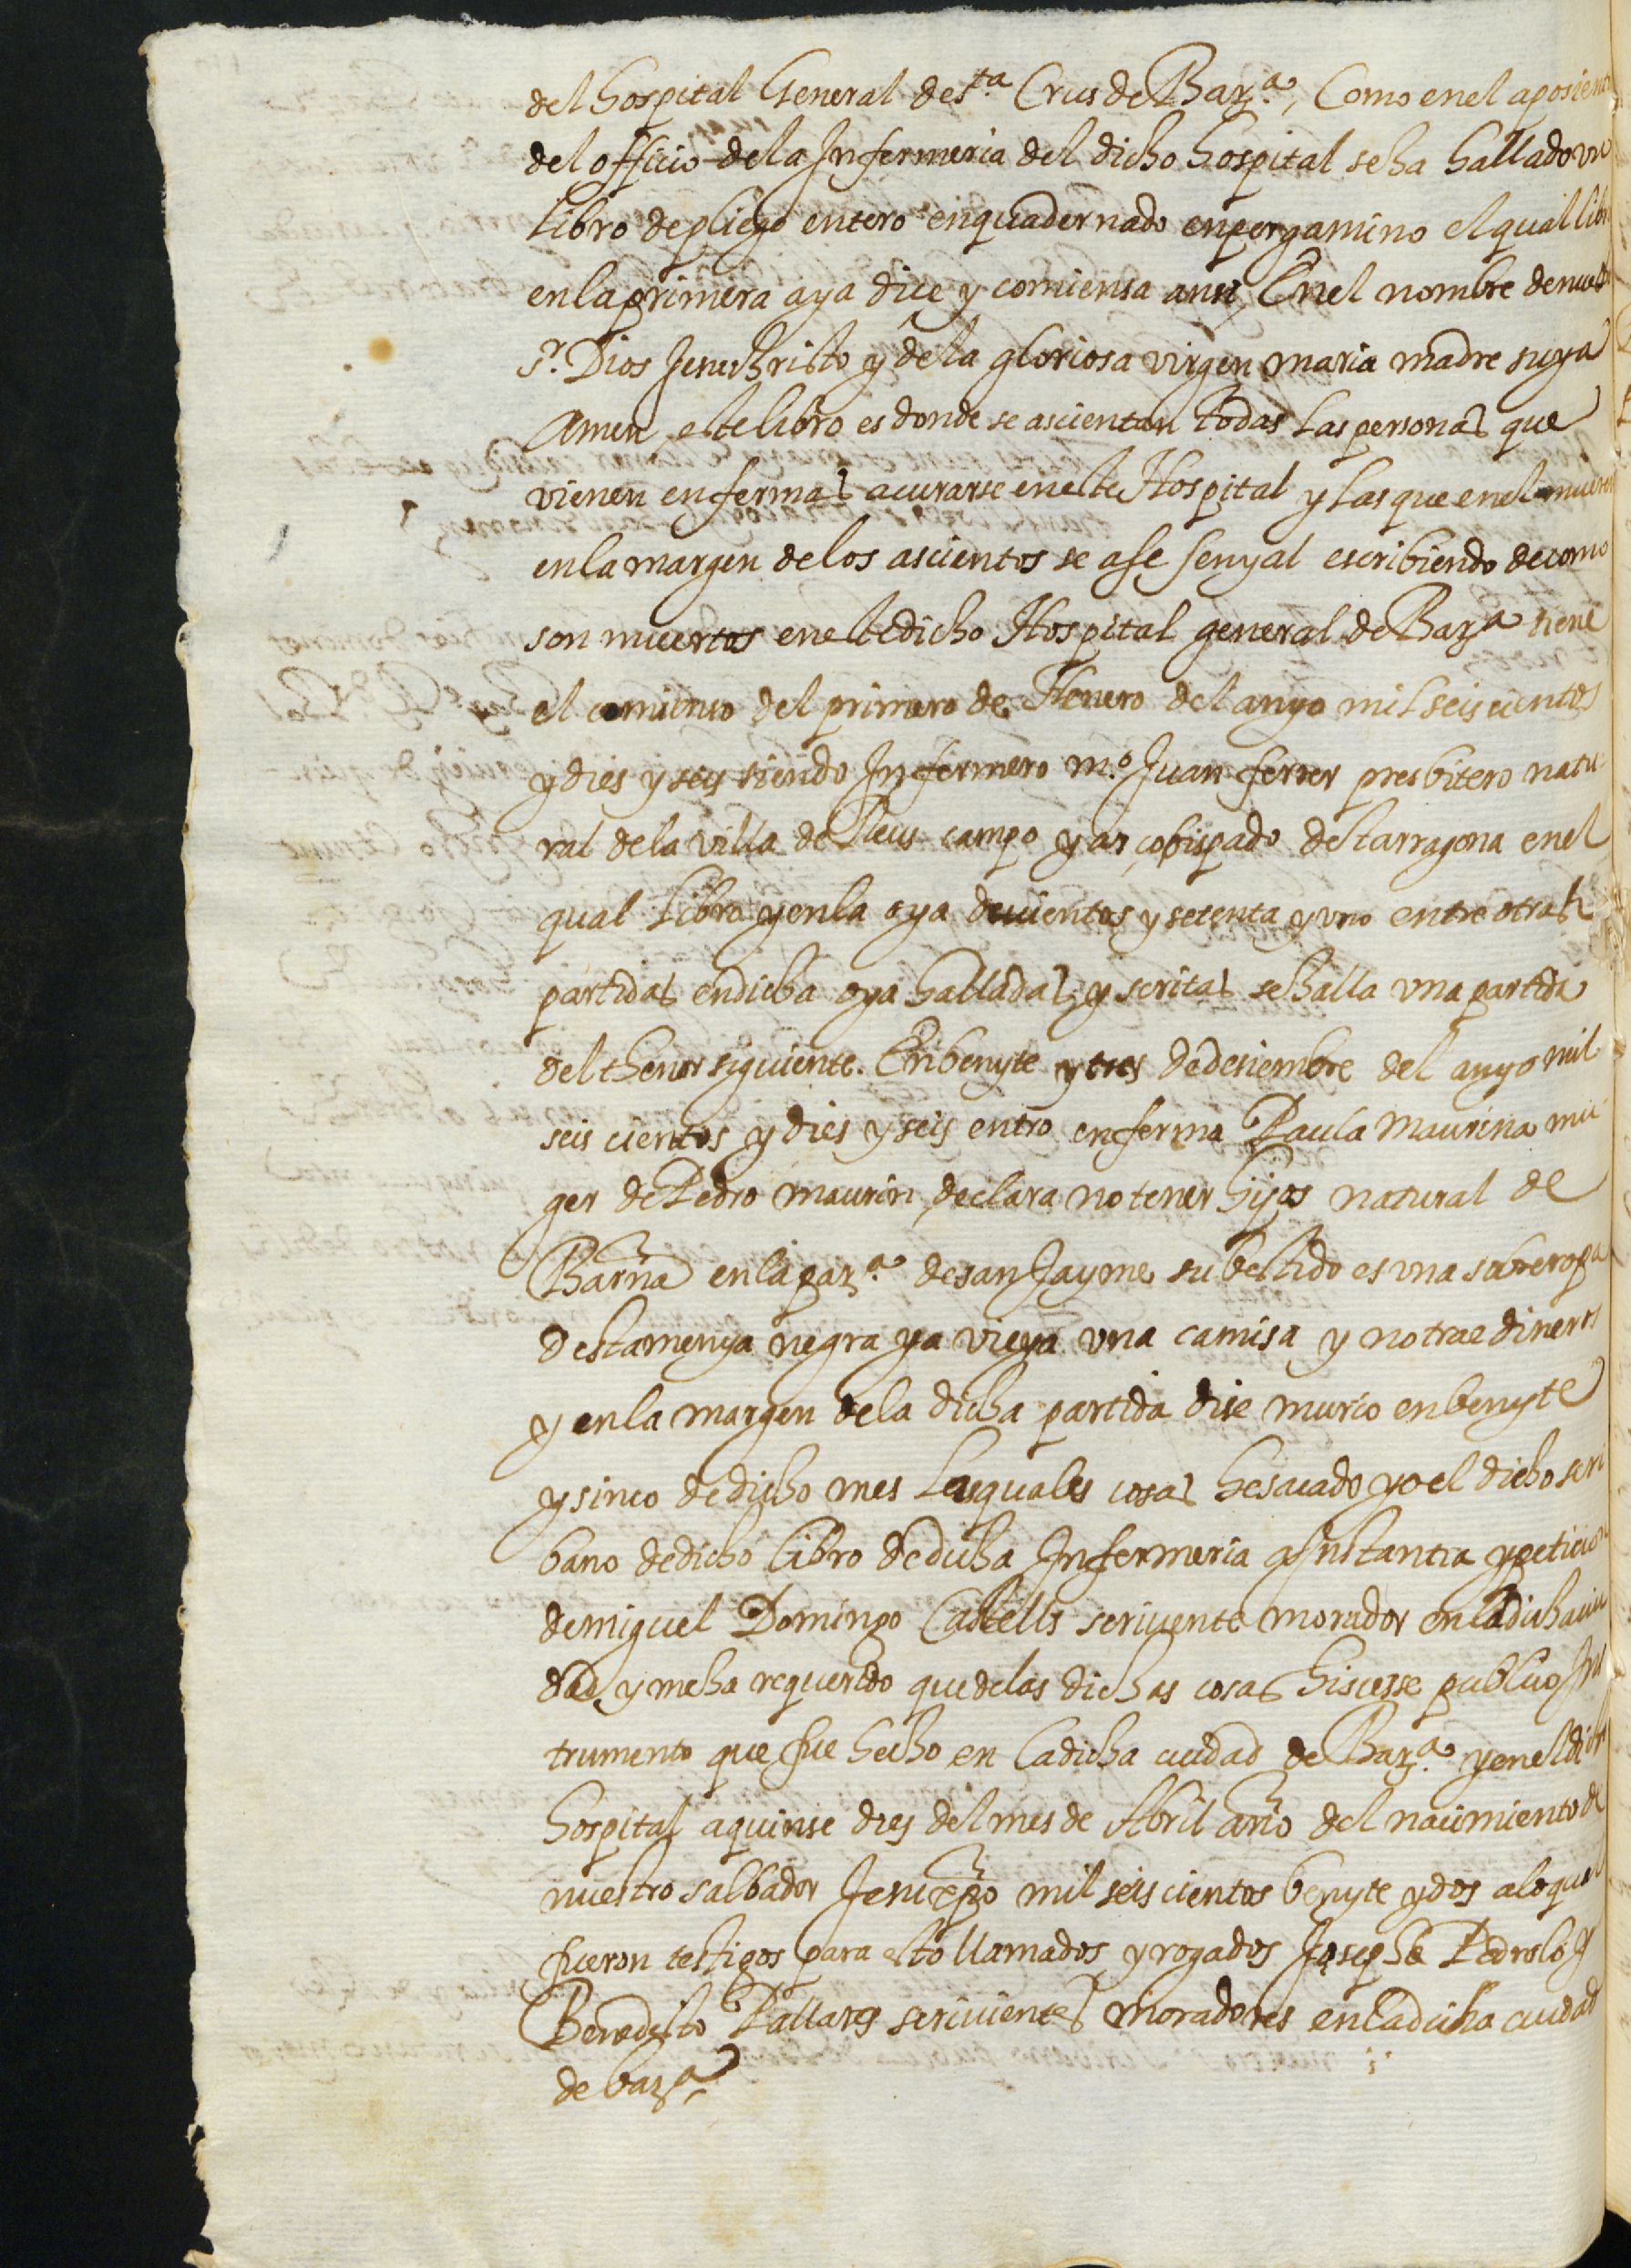 del hospital General de s.ta Crus de Bar.a, Como en el aposien
del officio de la Infermeria del dicho hospital se ha hallado un
libro de pliego entero enquadernado en pergamino el qual libr
en la primera aya dice y comiensa ansi, En el nombre de nuest
s.r Dios Jesuchristo y de la gloriosa virgen maria madre suya
Amen, este libro es donde se ascientan todas las personas que
vienen enfermas a curarse en este Hospital y las que en el mueren
en la margen de los ascientos se ase senyal escribiendo de como
son muertos en este dicho Hospital general de Bar.a tiene
el comienso del primero de Henero del anyo mil seiscientos
y dies y seis siendo Infermero m.o Juan ferrer presbitero natu
ral de la villa de Reus campo y arçobispado de tarragona en el
qual libro y en la oya docientos y setenta y uno entre otras
partidas en dicha oya halladas, y scritas se halla una partida
del thenor siguiente. En benyte y tres de desiembre del anyo mil
seis cientos y dies y seis entro enferma Paula Maurina mu
ger de Pedro maurin, declara no tener hijos natural de
Barña en la par.a de san Jayme, su bestido es una saberopa
destamenya negra ya vieya una camisa y no trae dineros
y en la margen de la dicha partida dise murio en benyte
y sinco de dicho mes Las quales cosas he sacado yo el dicho scri
bano de dicho libro de dicha Infermeria a instantia y peticion
de miguel Domingo Castells scrivente morador en la dicha ciu
dad, y me ha requerido que de las dichas cosas hiscesse publico Ins
trumento que fue hecho en la dicha ciudad de Bar.a y en el dich
hospital a quinse dies del mes de Abril año del nacimiento de
nuestro salbador Jesuxpo mil seis cientos benyte y dos a lo qual
fueron testigos para esto llamados, y rogados Joseph Pedrolo y
Benedito Pallares scrivientes moradores en la dicha ciudad
de bar.a